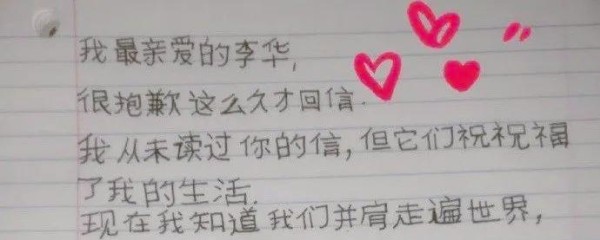 我最亲爱的李华,
很抱歉这么久才回信.
我从未读过你的信,但它们祝祝福
了我的生活.
现在我知道我们并肩走遍世界,